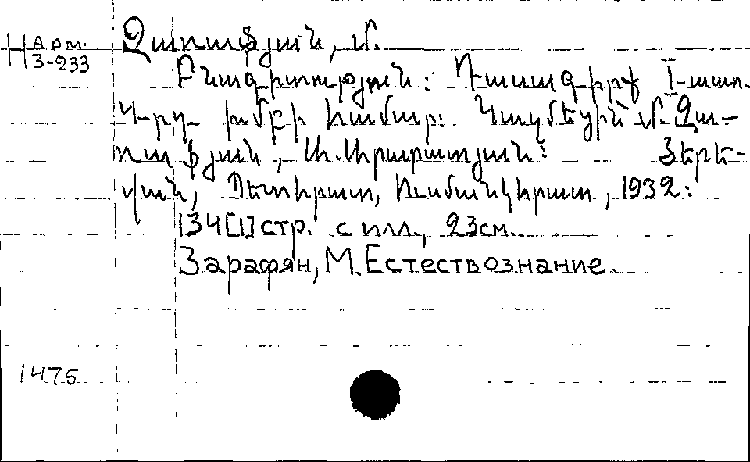 Арм. Զառաֆյան, Մ.
3-233
Բնագիտություն: Դասագիրք I-աստ.
4-րդ խմբի համար: Կազմեցին Մ. Զա-
ռաֆյան, Ա. Արարատյան: Յերե-
վան, Պետհրատ, Ուսմանկհրատ, 1932:
134[1] стр. с илл., 23см.
Зарафян, М. Естествознание.
1475